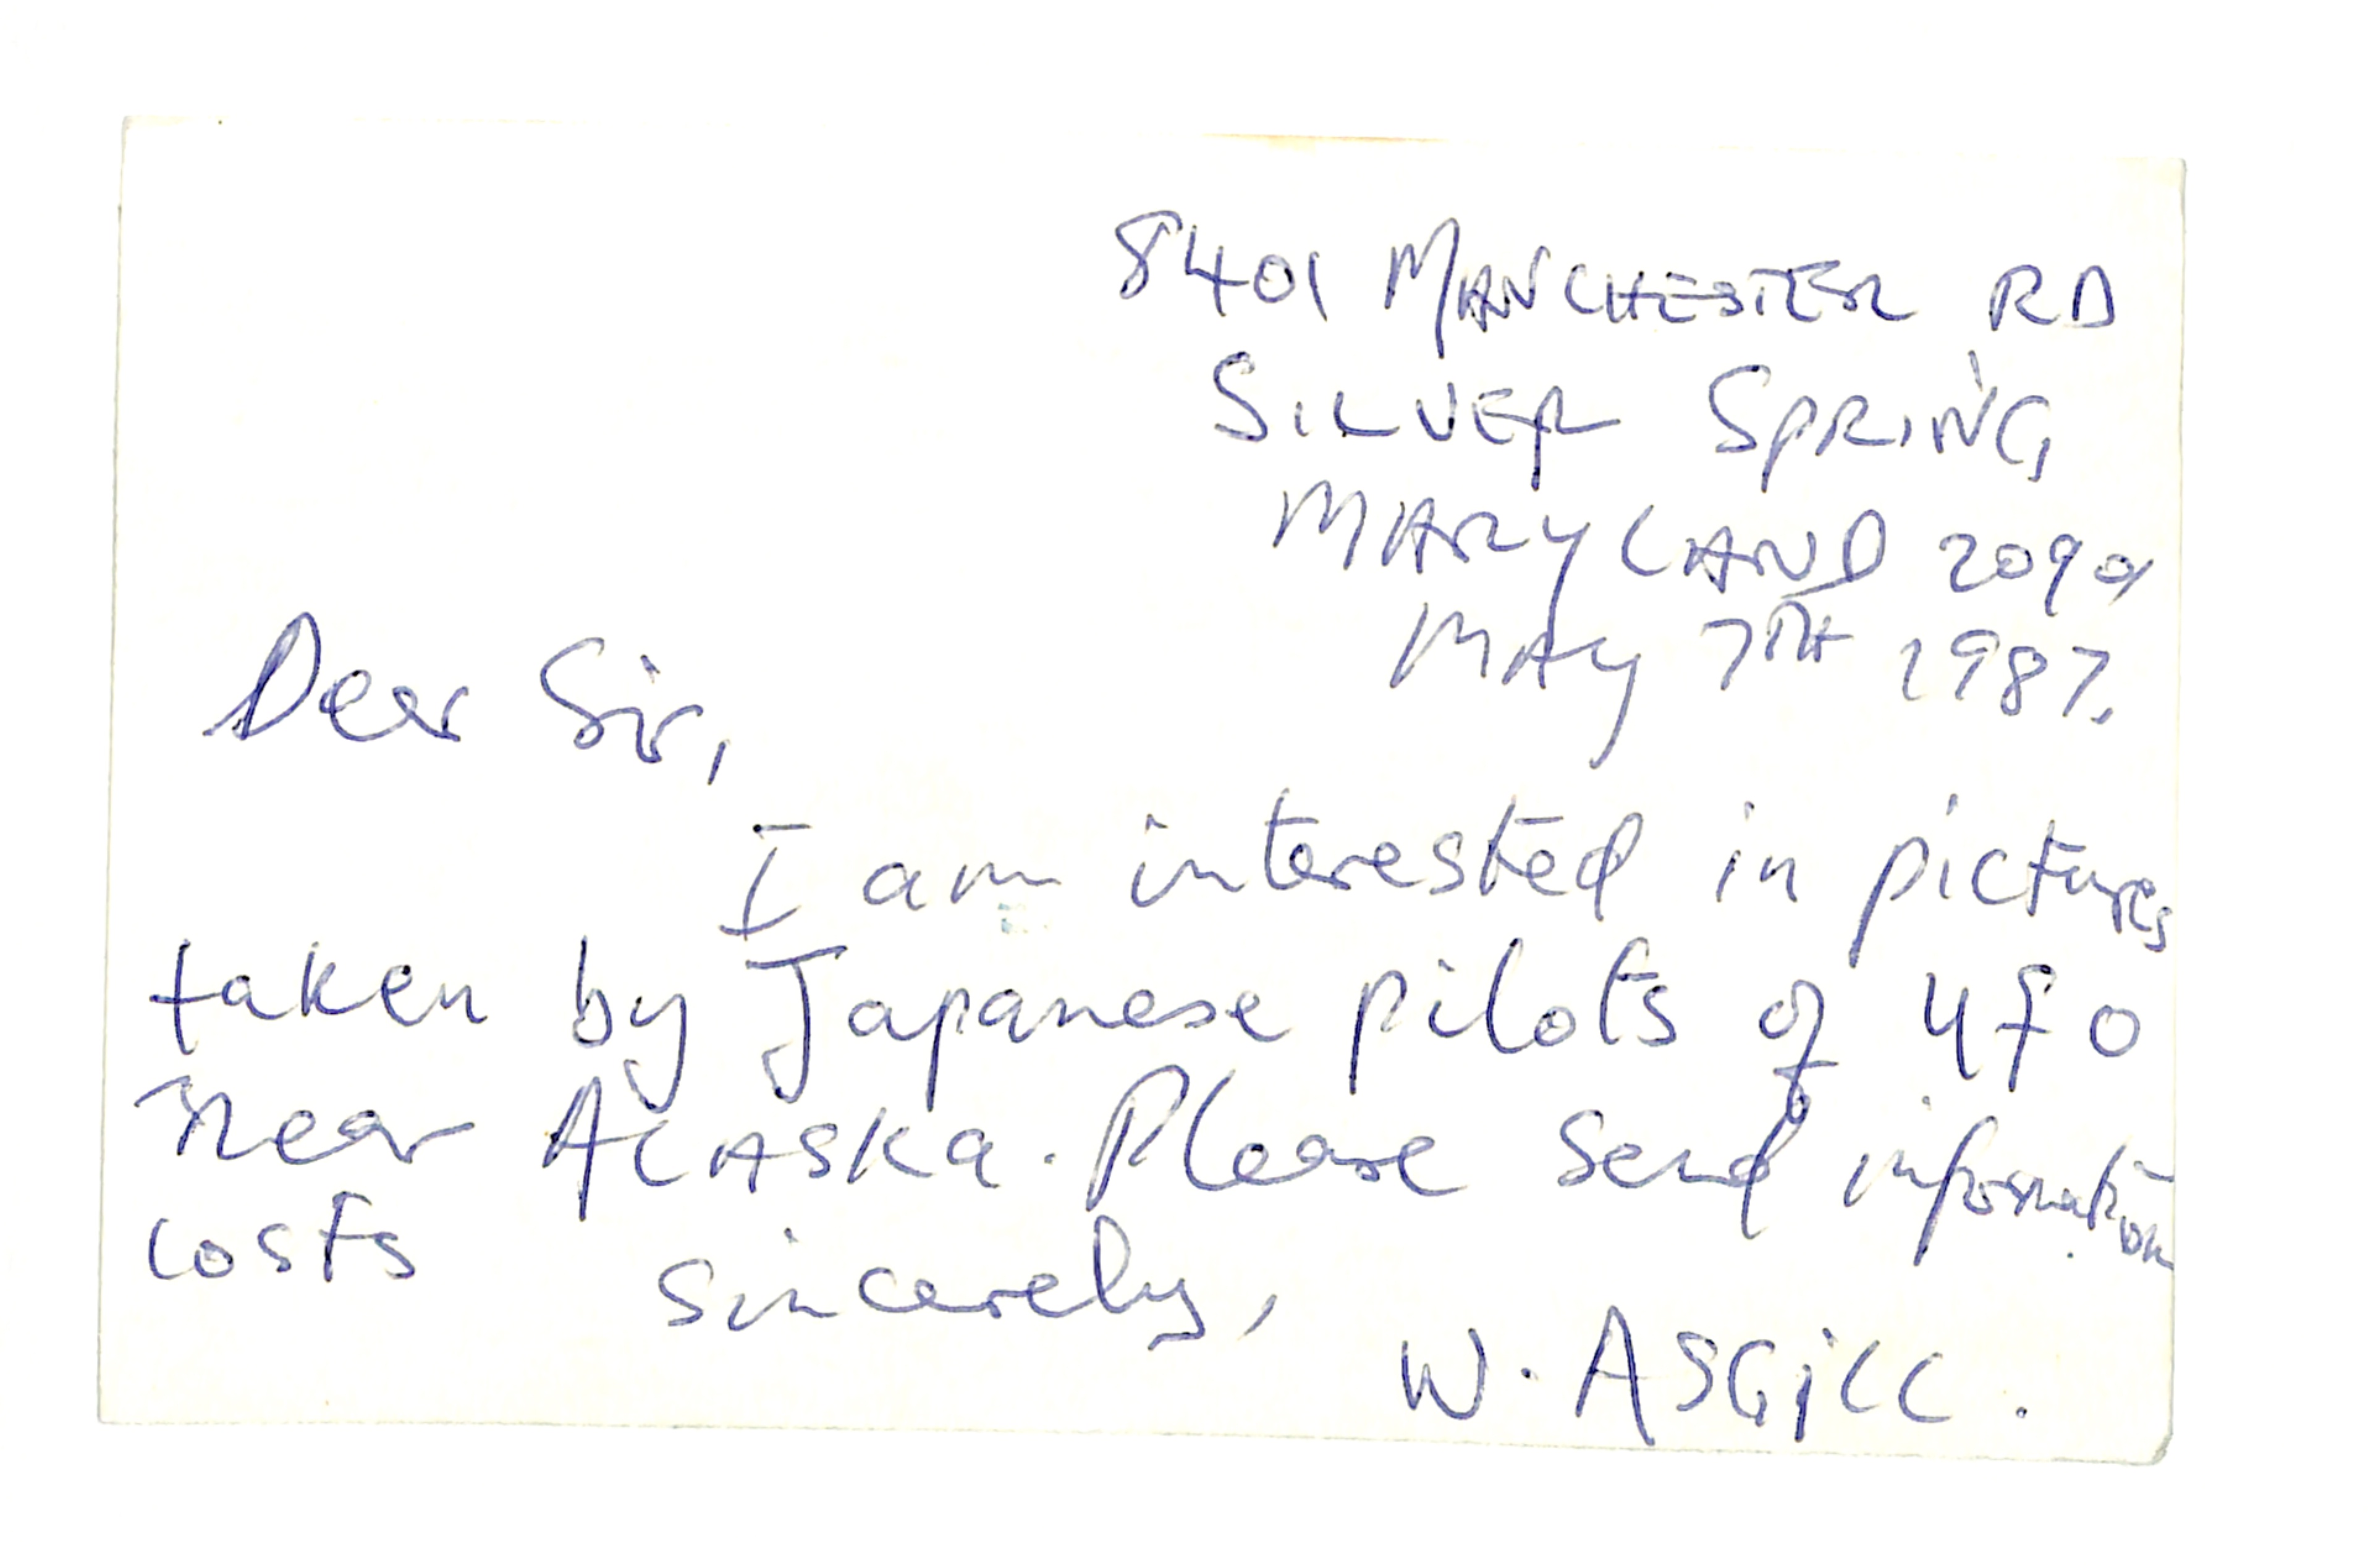 8401 MANCHESTER RD
SILVER SPRING
MARYLAND 20901
MAY 7TH 1987.
Dear Sir,
I am interested in pictures
taken by Japanese pilots of UFO
near ALASKa. Please send information
costs
sincerely,
W. ASGiLL.